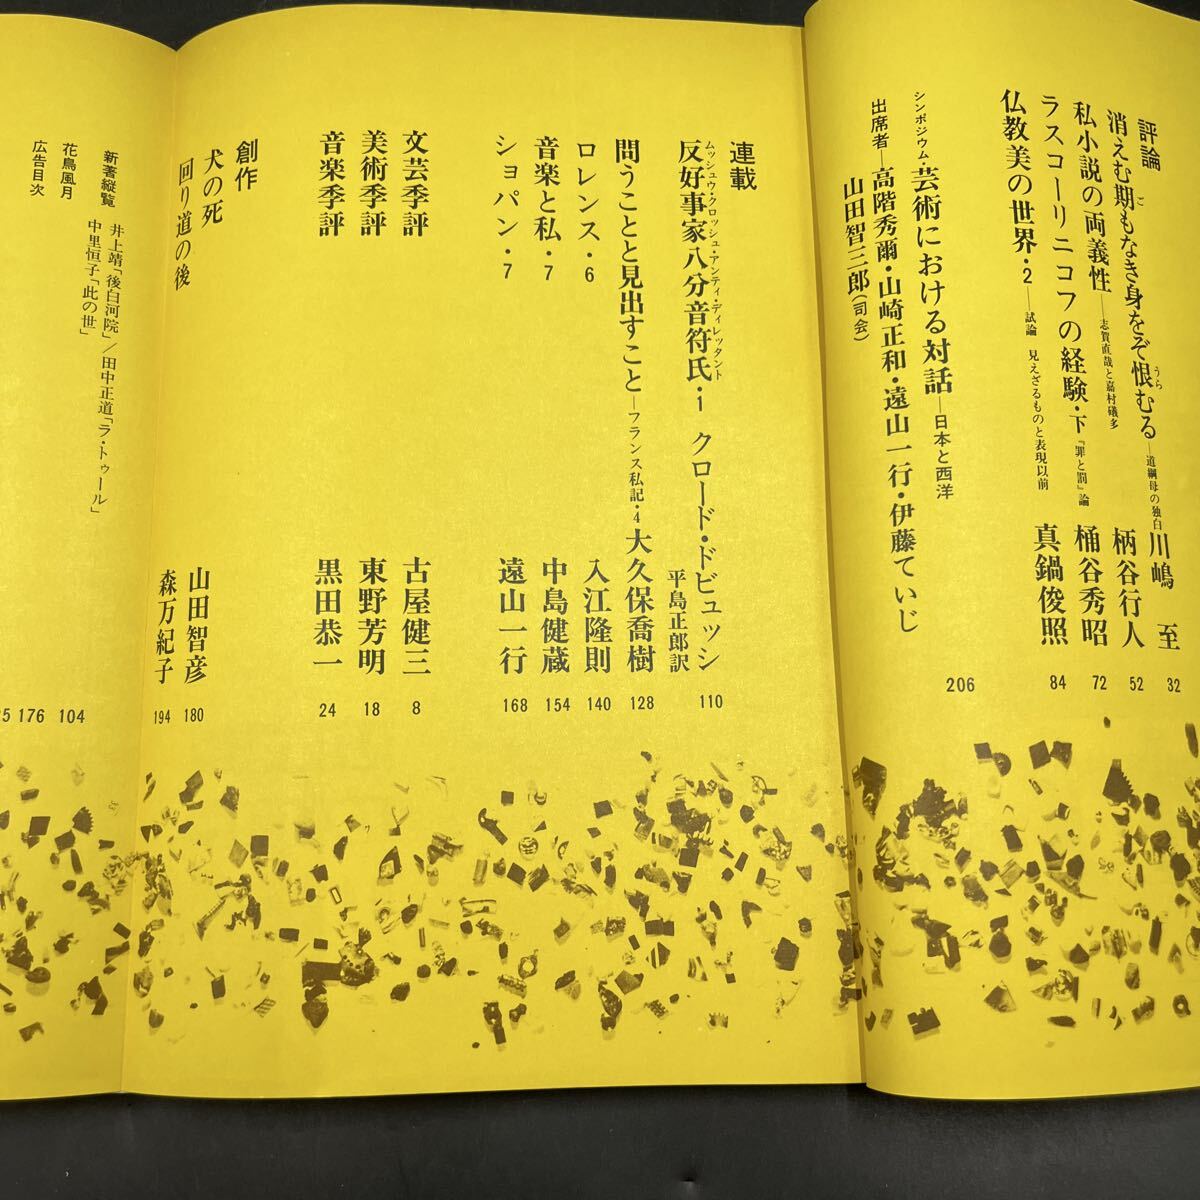 評論
消えむ期もなき身をぞ恨むる―道綱母の独白 川嶋 至 32
ご
うら
私小説の両義性―志賀直哉と嘉村礒多 柄谷行人 52
ラスコーリニコフの経験・下『罪と罰』論 桶谷秀昭 72
仏教美の世界・2―試論 見えざるものと表現以前 真鍋俊照 84
シンポジウム・芸術における対話―日本と西洋 206
出席者―高階秀爾・山崎正和・遠山一行・伊藤ていじ
山田智三郎(司会)
連載
ムッシュウ・クロッシュ・アンティ・ディレッタント
反好事家八分音符氏・1 クロード・ドビュッシ 110
平島正郎訳
問うことと見出すこと―フランス私記・4 大久保喬樹 128
ロレンス・6 入江隆則 140
音楽と私・7 中島健蔵 154
ショパン・7 遠山一行 168
文芸季評 古屋健三 8
美術季評 東野芳明 18
音楽季評 黒田恭一 24
創作
犬の死 山田智彦 180
回り道の後 森万紀子 194
新著縦覧 井上靖「後白河院」／田中正道「ラ・トゥール」 104
中里恒子「此の世」
花鳥風月 176
広告目次 25